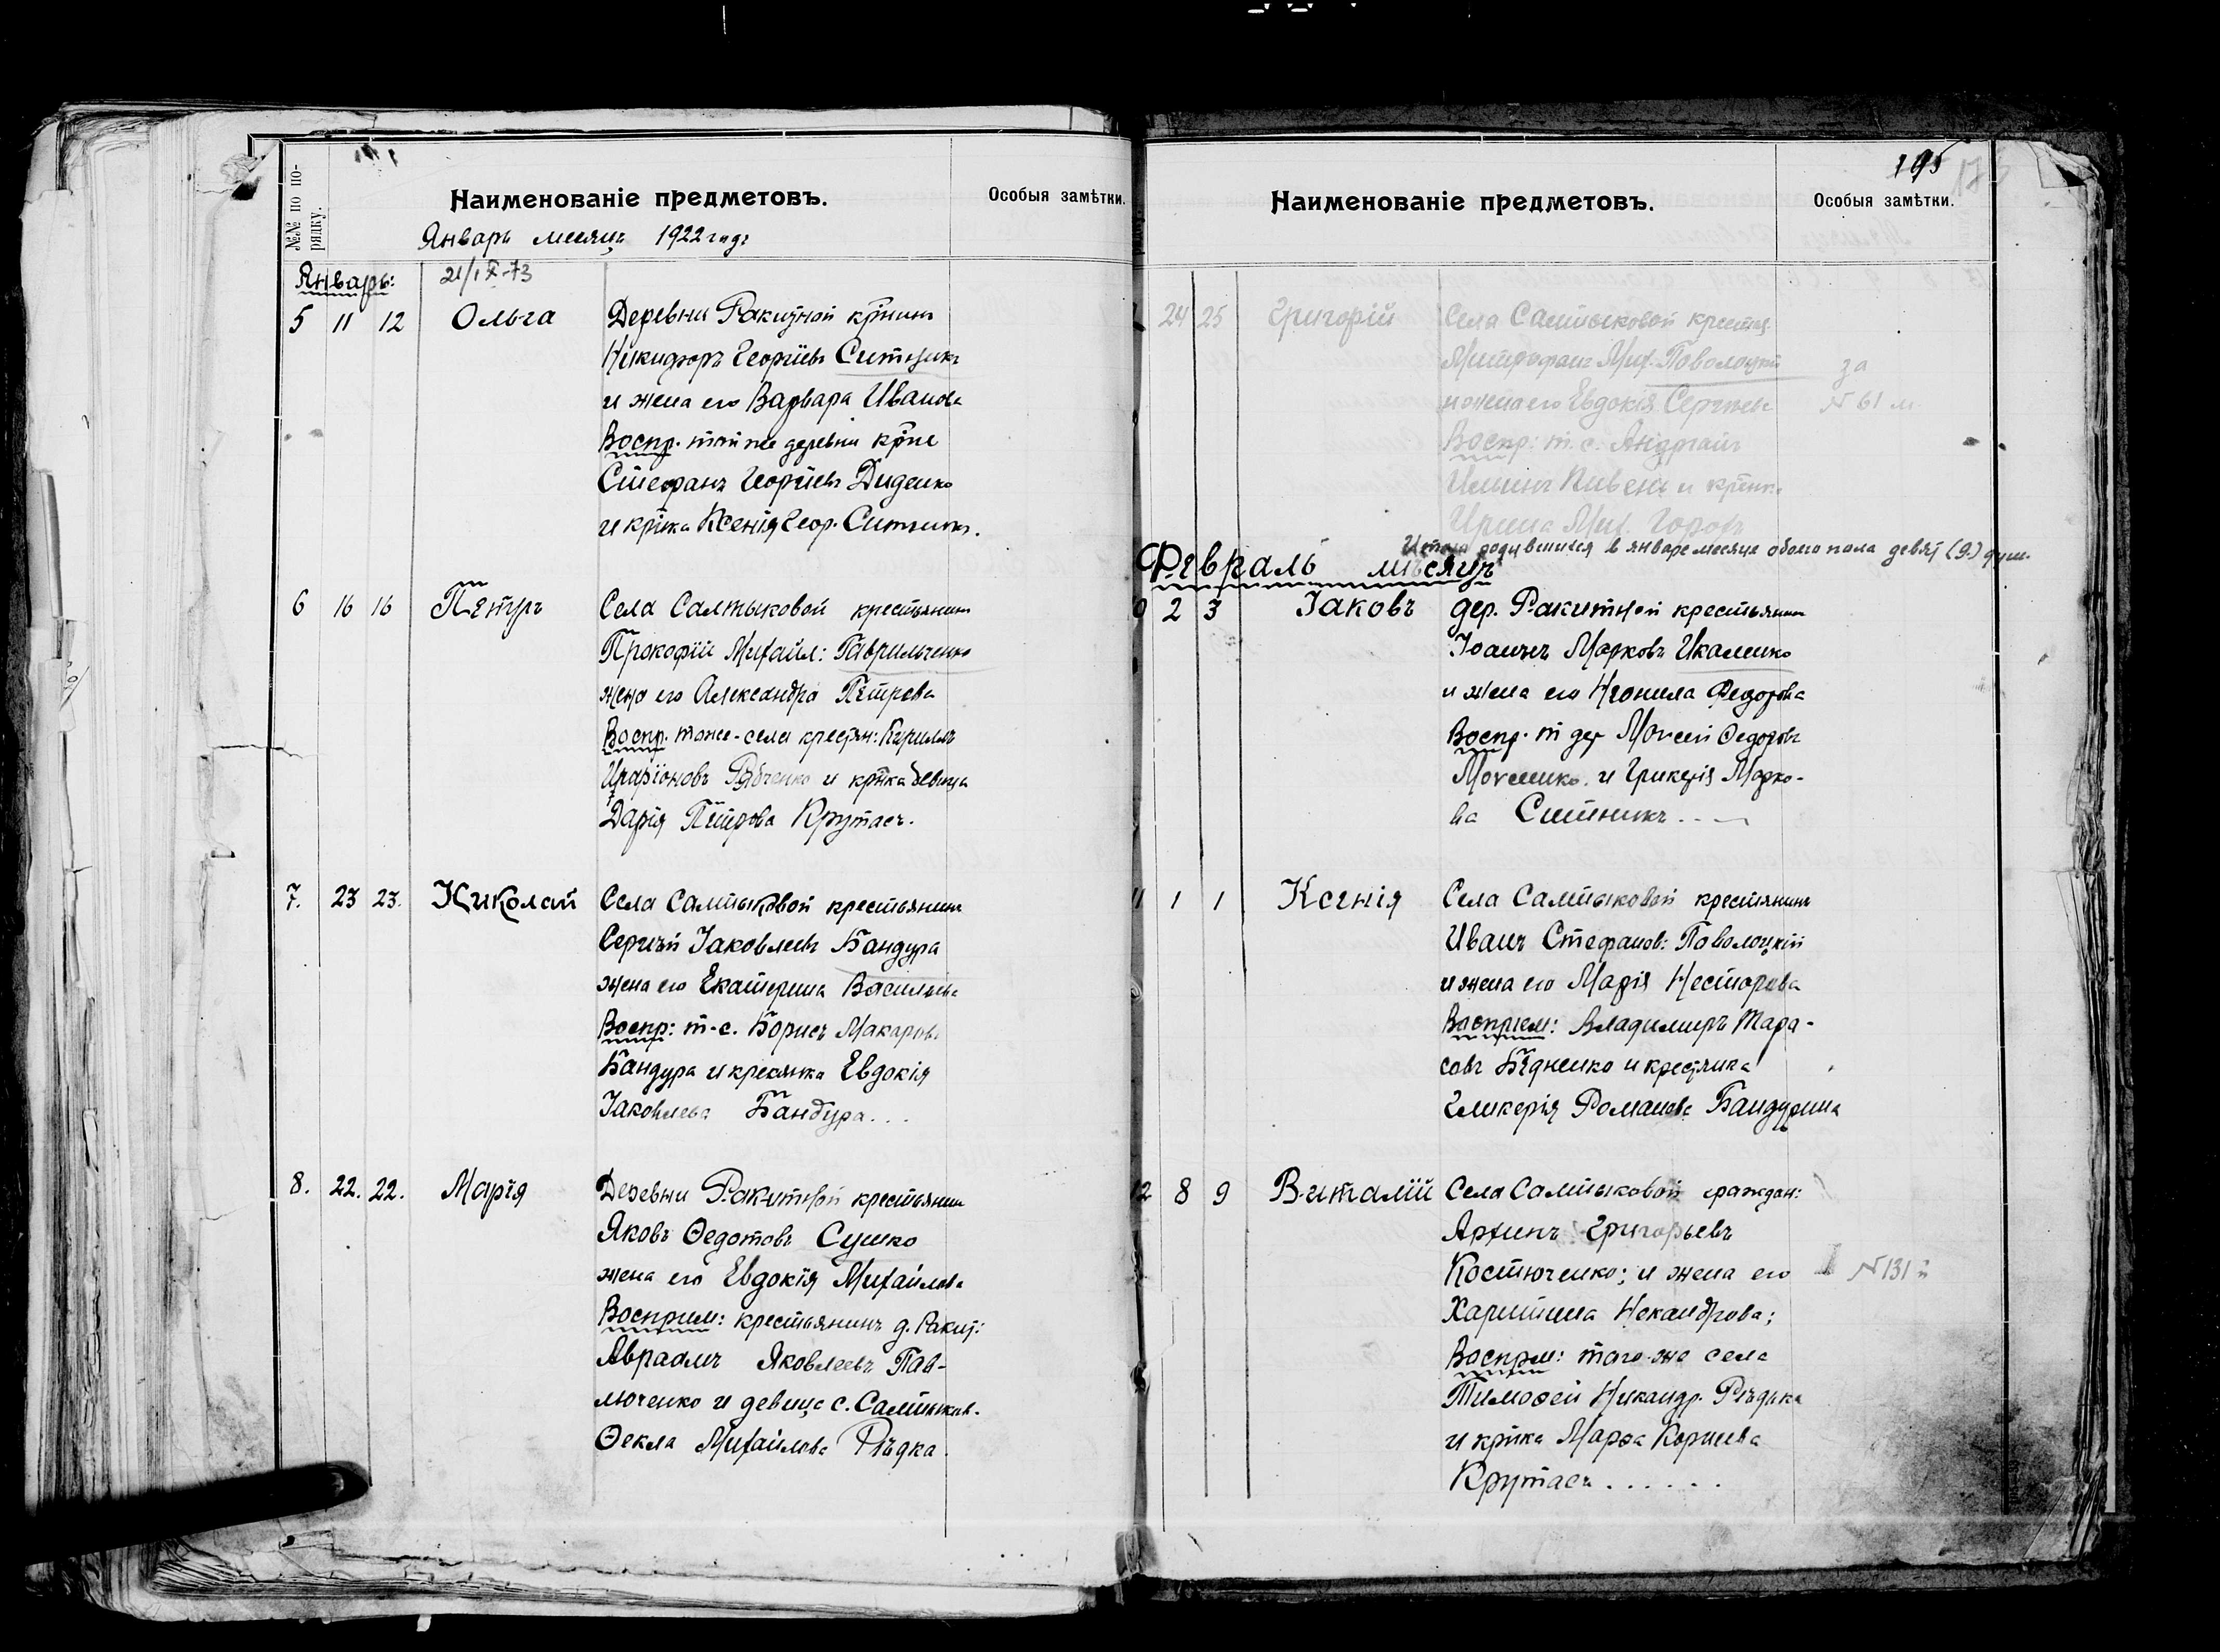 №№ по по-
рядку.
Наименованіе предметовъ.
Особыя замѣтки.
Январь месяцъ 1922 годъ
Январь:
21/IX-73
5 11 12 Ольга Деревни Ракитной кр̃нинъ
Никифоръ Георгіевъ Ситникъ
и жена его Варвара Иванова
Воспр. той же деревни кр̃не
Стефанъ Георгіевъ Диденко
и кр̃нка Ксенія Геор. Ситникъ.
6 16 16 Петръ Села Салтыковой крестьянинъ
Прокофій Михаил: Гаврильченко
жена его Александра Петрова
Воспр. тоже-села крестян: Кириллъ
Рябченко и кр̃нка девица
Дарія Петрова Крутась.
7. 23 23. Николай Села Салтыковой крестьянинъ
Сергѣй Іаковлевъ Бандура
жена его Екатерина Васильева
Воспр: т-с. Борисъ Макаровъ
Бандура и крестянка Евдокія
Іаковлева Бандура...
8. 22. 22. Марія Деревни Ракитной крестьянинъ
Яковъ Ѳедотовъ Сушко
жена его Евдокія Михайлова
Восприм: крестьянинъ д. Ракит:
Авраамъ Яковлевъ Пав-
люченко и девица с. Салтыков.
Ѳекла Михайлова Рѣдка.
Наименованіе предметовъ.
195
Особыя замѣтки.
24 25 Григорій Села Салтыковой крестья
Митрофанъ Мих. Поволоцкій
и жена его Евдокія Сергѣева
за
N 61 м.
Воспр: т. с. Андріанъ
Ильинъ Кивень и кр̃нка
Ирина Мих.
Итого родившихся в январе месяце обоего пола девят (9) душ.
Февраль мѣсяцъ
0 2 3 Іаковъ дер. Ракитной крестьянинъ
Іоаннъ Марковъ Икаленко
и жена его Неонила Федорова
Воспр. т дер Моисей Федоровъ
Мосиенко и Гликерія Марко-
ва Ситникъ...
11 1 1 Ксенія Села Салтыковой крестянинъ
Иванъ Стефанов: Поволоцкій
и жена его Марія Несторова
Воспріем: Владимиръ Тара-
совъ Бѣдненко и крестянка
Гликерія Романова Бандурина
12 8 9 Виталій Села Салтыковой граждан:
Архипъ Григорьевъ
Костюченко; и жена его
N 131
Харитина Некандрова;
Воспрм: того-же села
Тимофей Никандр. Рѣдька
и кр̃нка Марѳа Корнеева
Крутась......